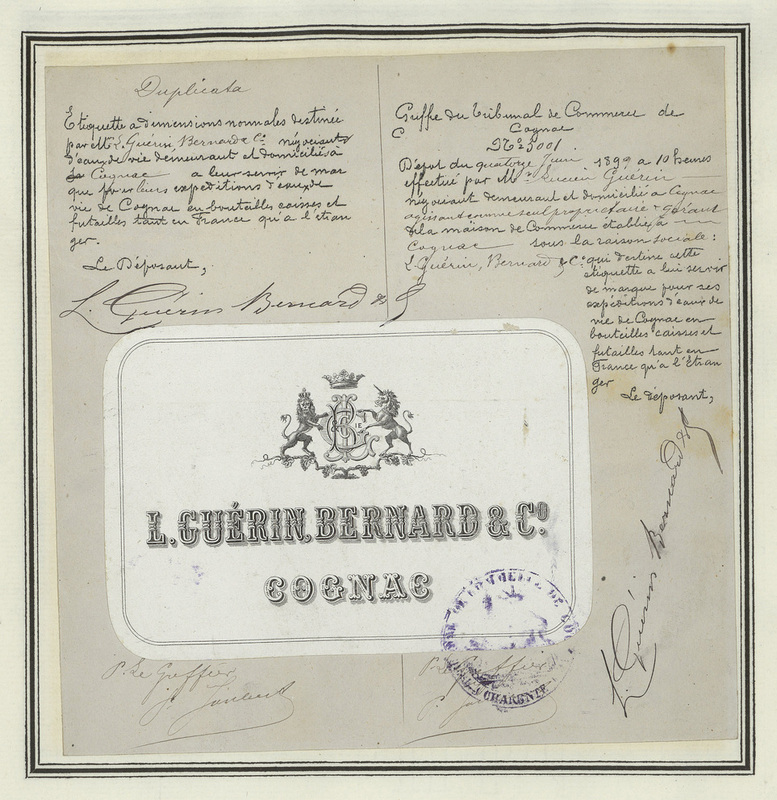 Duplicata
Etiquette à dimensions normales destinée
par Mr L. Guérin, Bernard & Cie négociants
d'eaux de vie demeurant et domiciliés à
Cognac a leur servir de mar
que pour leurs expéditions d'eaux de
vie de Cognac en bouteilles caisses et
futailles tant en France qu'a l'étran
ger.
Le Déposant,
L. Guérin Bernard & C
Greffe du Tribunal de Commerce de
C
Cognac
No 5001
Dépot du quatorze Juin 1899 a 10 heures
effectué par Mr Lucien Guérin
négociant demeurant et domicilié a Cognac
agissant comme seul propriétaire & gérant
de la maison de Commerce établie à
Cognac sous la raison sociale:
L. Guérin, Bernard & Co qui destine cette
étiquette a lui servir
de marque pour ses
expéditions d'eaux de
vie de Cognac en
bouteilles caisses et
futailles tant en
France qu'a l'étran
ger
Le déposant,
L. Guérin Bernard & C
L. GUÉRIN, BERNARD & Co
COGNAC
P. Le Greffier
P. Le Greffier
CHARENTE